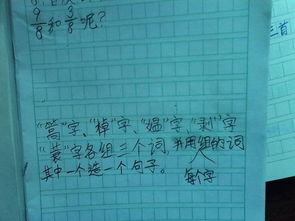 9/8和3/8呢?
三首
"篙"字、"棹"字、"媪"字、"剥"字
"蓑"字各组三个词,并用组的词
其中一个造一个句子。
每个字